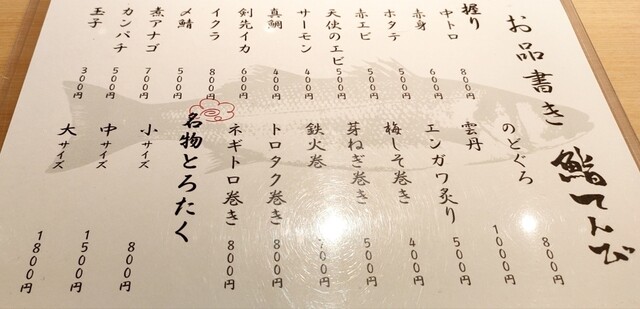 お品書き 鮨てんび
握り
中トロ 800円
赤身 600円
ホタテ 500円
赤エビ 500円
天使のエビ 500円
サーモン 400円
真鯛 400円
剣先イカ 600円
イクラ 800円
〆鯖 500円
煮アナゴ 700円
カンパチ 500円
玉子 300円
のどぐろ 800円
雲丹 1000円
エンガワ炙り 500円
梅しそ巻き 400円
芽ねぎ巻き 500円
鉄火巻
トロタク巻き 800円
ネギトロ巻き 800円
名物とろたく
小サイズ 800円
中サイズ 1500円
大サイズ 1800円